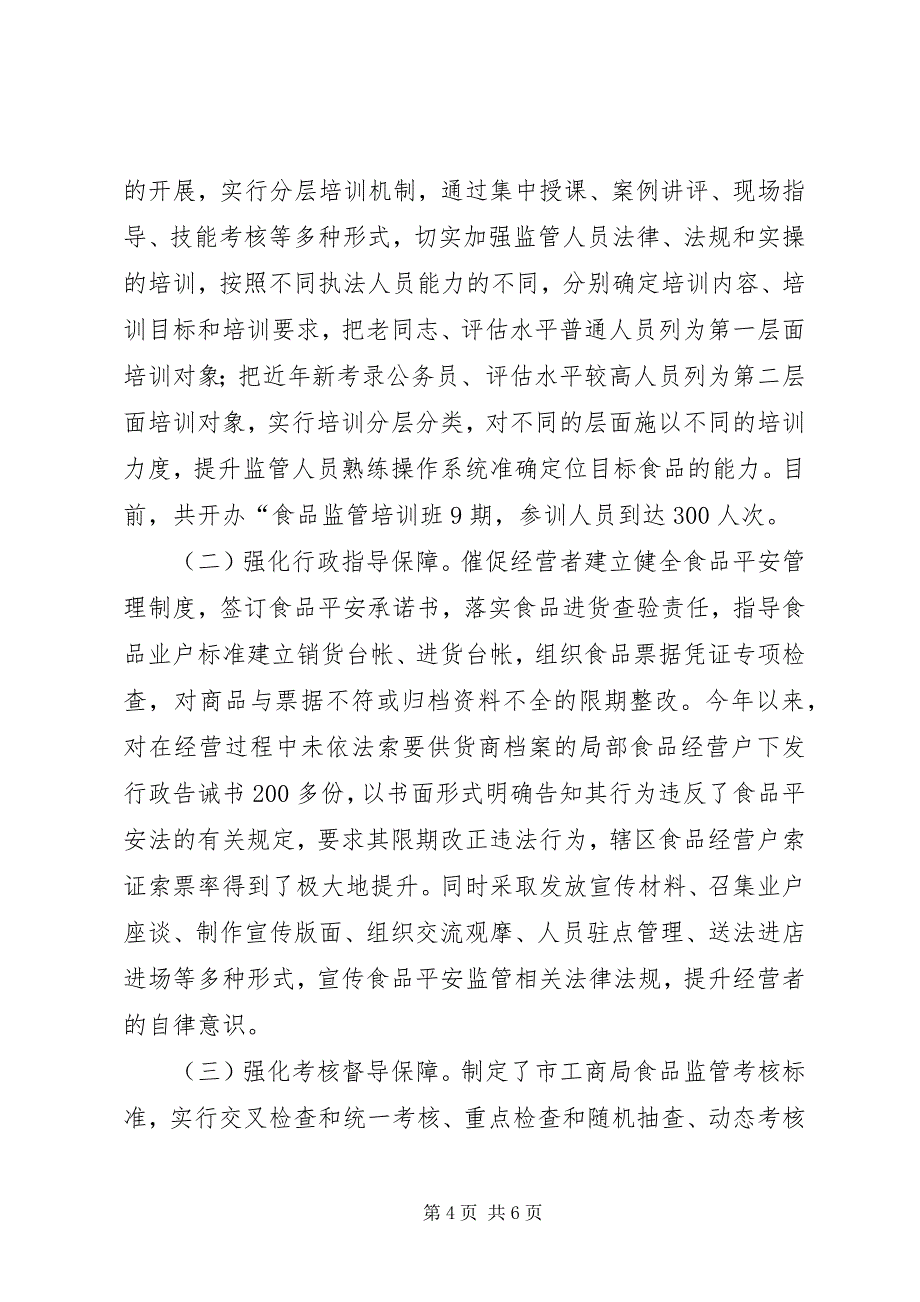 的开展，实行分层培训机制，通过集中授课、案例讲评、现场指
导、技能考核等多种形式，切实加强监管人员法律、法规和实操
的培训，按照不同执法人员能力的不同，分别确定培训内容、培
训目标和培训要求，把老同志、评估水平普通人员列为第一层面
培训对象；把近年新考录公务员、评估水平较高人员列为第二层
面培训对象，实行培训分层分类，对不同的层面施以不同的培训
力度，提升监管人员熟练操作系统准确定位目标食品的能力。目
前，共开办“食品监管培训班 9 期，参训人员到达 300 人次。
（二）强化行政指导保障。催促经营者建立健全食品平安管
理制度，签订食品平安承诺书，落实食品进货查验责任，指导食
品业户标准建立销货台帐、进货台帐，组织食品票据凭证专项检
查，对商品与票据不符或归档资料不全的限期整改。今年以来，
对在经营过程中未依法索要供货商档案的局部食品经营户下发
行政告诫书 200 多份，以书面形式明确告知其行为违反了食品平
安法的有关规定，要求其限期改正违法行为，辖区食品经营户索
证索票率得到了极大地提升。同时采取发放宣传材料、召集业户
座谈、制作宣传版面、组织交流观摩、人员驻点管理、送法进店
进场等多种形式，宣传食品平安监管相关法律法规，提升经营者
的自律意识。
（三）强化考核督导保障。制定了市工商局食品监管考核标
准，实行交叉检查和统一考核、重点检查和随机抽查、动态考核
第 4 页 共 6 页